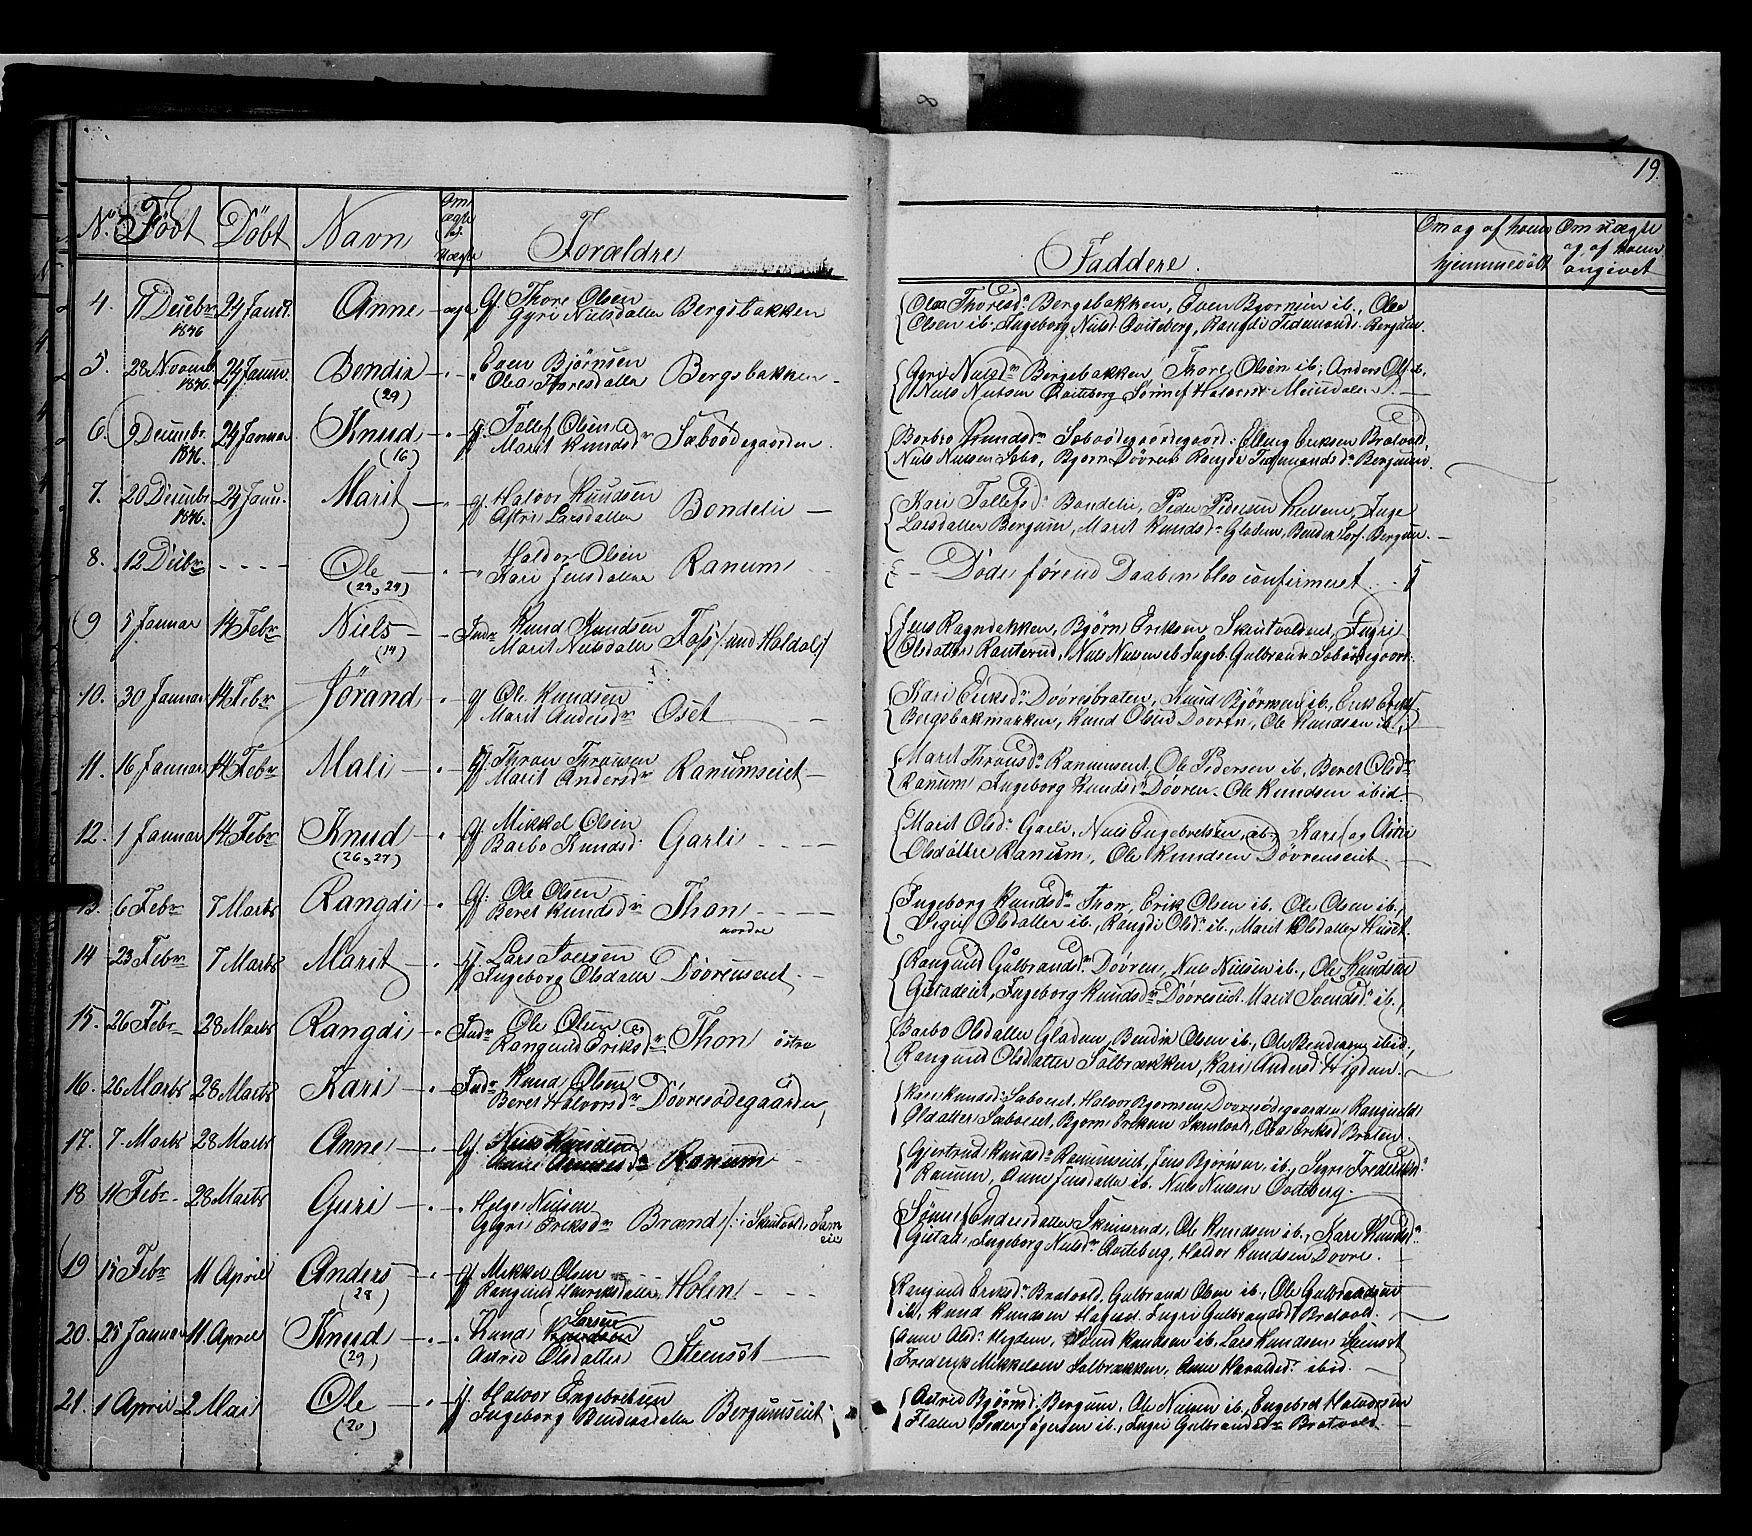 8
19.
No. Født Døbt Navn Om ægte el. uægte Forældre
Faddere.
Om og af hvem hjemmedöbt
Om uægte og af hvem angivet
4. 11 Decebr 1846 24 Janr. Anne ægte G: Thore Olsen
Gyri Nielsdatter Bergsbakken
Olea Thoresdr Bergsbakken, Even Bjørnsen ib, Ole
Olsen ib. Ingeborg Nielsd. Qviteberg, Rangdi Tidemandsd. Bergum.
5. 28 Novemb 1846. 24 Janu. Bendix (29) Even Bjørnsen
Olea Thoresdatter Bergsbakken
Gyri Nielsdr Bergsbakken, Thore Olsen ib; Anders Ols. ib.
Niels Nielsen Qviteberg
6. 9 Decembr. 1846. 24 Januar Knud (16) G. Tollef Olsen
Marit Knudsdr Sæboödegaarden
Barbro Knudsdr Sæboödegaard: Elling Eriksen Bratvold,
Niels Nielsen Sebo, Bjørn Døvren Rangdi Tidemandsd: Bergum.
7. 20 Decembr 1846. 24 Janu. Marit G. Halvor Knudsen
Astri Larsdatter Bondelie
Kari Tollefsd: Bondelie, Peder Pedersen Hellem, Inge
Larsdatter Bergum, Marit Knudsd: Gladem, Bendix Bergum.
8. 12 Decbr Ole (24, 24) Haldor Olsen
Kari Jensdatter Ranum
Døde førend Daaben blev confirmeret
9 5 Januar 14 Febr Niels (14) Indr Knud Knudsen
Marit Nielsdatter
Jens Bjørn Eriksen, Skrutvoldseiet, Ingri
Olsdatter Niels Nielsen ib Ingeb. Gulbrandsd. Sæboödegaard.
10. 30 Januar 14 Febr Jørand G Ole Knudsen
Marit Andersdr Oset
Kari Eriksdr Døvresbraten, Knud Bjørnsen ib, Erik Eriks.
Knud Olsen Døvren, Ole Knudsen ib.
11. 16 Januar 14 Febr Mali G. Thron Thronsen
Marit Andersdr Ranumseiet
Marit Thronsdr Ranumseiet, Ole Pedersen ib, Beret Olsdr
Ranum Ingeborg Knudsdr Døvren. Ole Knudsen ibid.
12. 1 Januar 14 Febr Knud (26, 27) G. Mikkel Olsen
Barbo Knudsd. Garli
Marit Olsdr Garli, Niels Engebretsen, ib; Kari og
Olsdøttre Ranum, Ole Knudsen Døvrenseiet.
13. 6 Febr 7 Marts Rangdi G: Ole Olsen
Beret Knudsdr Thon nordre
Ingeborg Knudsdr Thon, Erik Olsen ib. Ole Olsen ib.,
Segri Olsdatter ib., Rangdi Olsdr ib., Marit Olsdatter Huset.
14 23 Febr 7 Marts Marit G Lars Iversen
Ingeborg Olsdatter Døvrenseiet
Rangnid Gulbrandsdr Døvren, Niels Nielsen ib., Ole Knudsen
Ingeborg Knudsdr Døvreseiet. Marit Svendsdr ib.,
15. 26 Febr 28 Marts Rangdi Indr Ole Olsen
Rangnid Eriksdr Thon östre
Barbo Olsdatter Gladem, Bendix Olsen ib., Ole Bendixsen ibid,
Rangnid Olsdatter Solbrækken, Kari Andersd. Higdem.
16. 26 Marts 28 Marts Kari Indr Knud Olsen
Beret Halvorsdr Døvresødegaarden
Kari Knudsd: Sæboeiet, Halvor Bjørnsen Døvresødegaarden Rangnild
Olsdatter Sæboeiet, Bjørn Eriksen Skrutvold, Olea Eriksd Braten.
17. 7. Marts 28 Marts Anne G. Niels Knudsen
Ranum
Gjertrud Knudsdr Ranumseiet, Jens Bjørnsen ib., Segri Frederiksd.
Ranum, Anne Jensdatter ib. Niels Nielsen Qviteberg.
18 11 Febr 28 Marts Guri Helge Nielsen
Gyri Eriksdr Brænd /: i Skrutvold
Sönnef Endresdatter Ole Knudsen ib., Kari Knudsd.
Ingeborg Nielsdr Qviteberg, Haldor Knudsen Dovre.
19 15 Febr 11 April Anders (28) G Mikkel Olsen
Rangnid Henriksdatter Holen
Rangnid Eriksdr Bratvold. Gulbrand Olsen ib, Ole Gulbrandsen
ib. Knud Knudsen Ingri Gulbrandsd Bratvold.
20. 25 Januar 11 April Knud (29) Knud Larsen
Astrid Olsdatter Steenset
Anne Olsd. Higdem, Svend Knudsen ib. Lars Knudsen Steenset
Frederik Mikkelsen Solbrækken, Anne Haraldsd. ibid.
21. 1 April 2 Mai Ole (20) G. Halvor Engebretsen
Ingeborg Bendixsdatter Bergumseiet
Astrid Bjørnsd: Bergum, Ole Nielsen ib., Engebret Halvorsen
Flaten ib., Ingri Gulbrandsdr Bratvold.